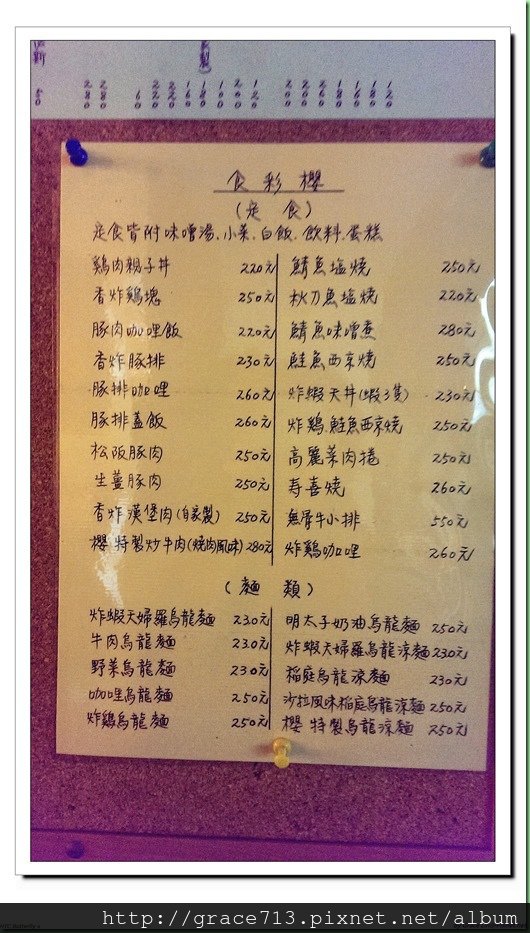 食彩櫻
(定食)
定食皆附味噌湯.小菜.白飯.飲料.蛋糕
鷄肉親子丼 220元
香炸鷄塊 250元
豚肉咖哩飯 220元
香炸豚排 230元
豚排咖哩 260元
豚排蓋飯 260元
松阪豚肉 250元
生薑豚肉 250元
香炸漢堡肉(自家製) 250元
櫻 特製炒牛肉(燒肉風味) 280元
鯖魚塩燒 250元
秋刀魚塩燒 220元
鯖魚味噌煮 280元
鮭魚西京燒 250元
炸蝦天丼(蝦3隻) 230元
炸鷄.鮭魚西京燒 250元
高麗菜肉捲 250元
寿喜燒 260元
無骨牛小排 550元
炸鷄咖哩 260元
(麵類)
炸蝦天婦羅烏龍麵 230元
牛肉烏龍麵 230元
野菜烏龍麵 230元
咖哩烏龍麵 250元
炸鷄烏龍麵 250元
明太子奶油烏龍麵 250元
炸蝦天婦羅烏龍涼麵 230元
稻庭烏龍涼麵 230元
沙拉風味稻庭烏龍涼麵 250元
櫻 特製烏龍涼麵 250元
http://grace713.pixnet.net/album